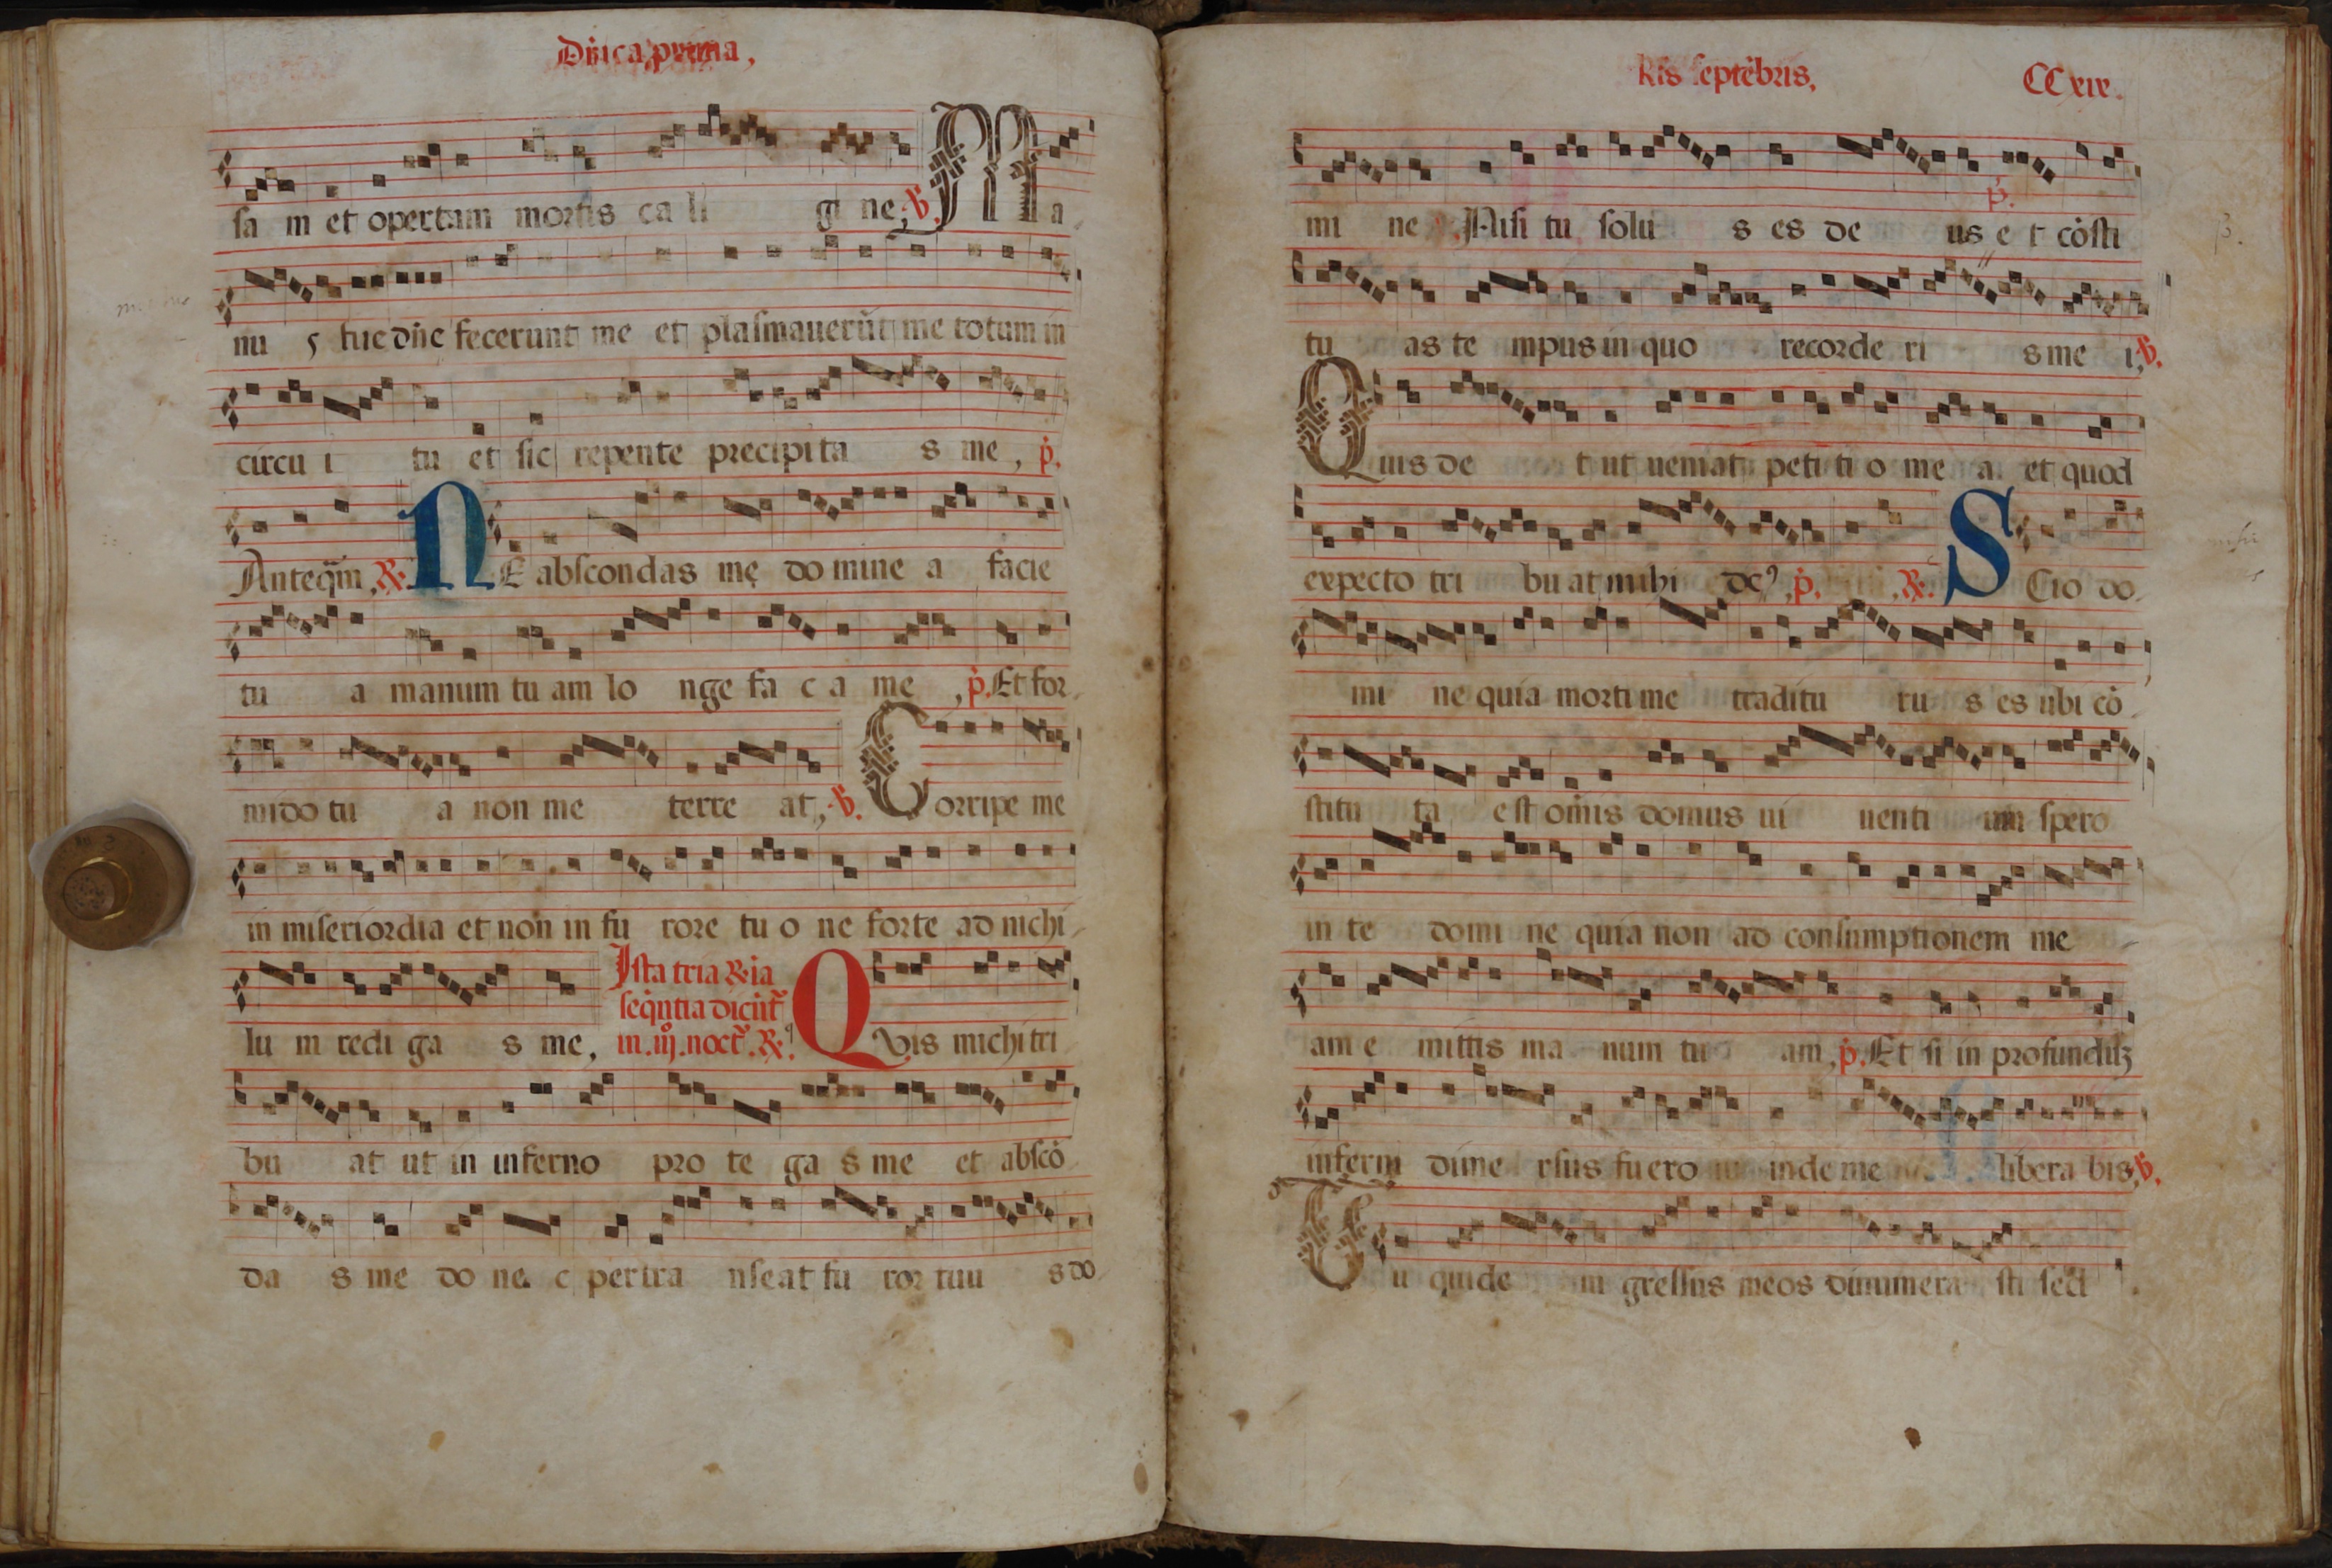 Dñica prima,
sa m et opertam mortis ca li gi ne, ℣. Ma
nu s tue dñe fecerunt me et plasmauerũt me totum in
circu i tu et sic repente precipi ta s me, p̈.
Anteq̃m, ℟. NE abscondas me do mine a facie
tu a manum tu am lo nge fa c a me, p̈. Et for
mido tu a non me terre at, ℣. Corripe me
in miseriordia et non in fu rore tu o ne forte ad nichi
lu m redi ga s me, Ista tria ℟ia
seq̃ntia dicũt̃
in .iij. noct̃. ℟. QVis michi tri
bu at ut in inferno pro te ga s me et abscõ
da s me do ne c pertra nseat fu ror tuu s do
septẽbris,
CCxix.
mi ne Nisi tu solu s es de us p̈. e t cõsti
tu as te mpus in quo recorde ri s me i, ℣.
Quis de t ut ueniat peti ti o me a et quod
expecto tri bu at mihi de⁹, p̈. ℟. SCio do
mi ne quia morti me traditu ru s es ubi cõ
stitu ta est om̃is domus ui uenti um spero
in te domi ne quia non ad consumptionem me
am e mittis ma num tu am, p̈. Et si in profundũꝫ
inferni dime rsus fuero inde me libera bis, ℣.
Tu quide m gressus meos dinumera sti sed